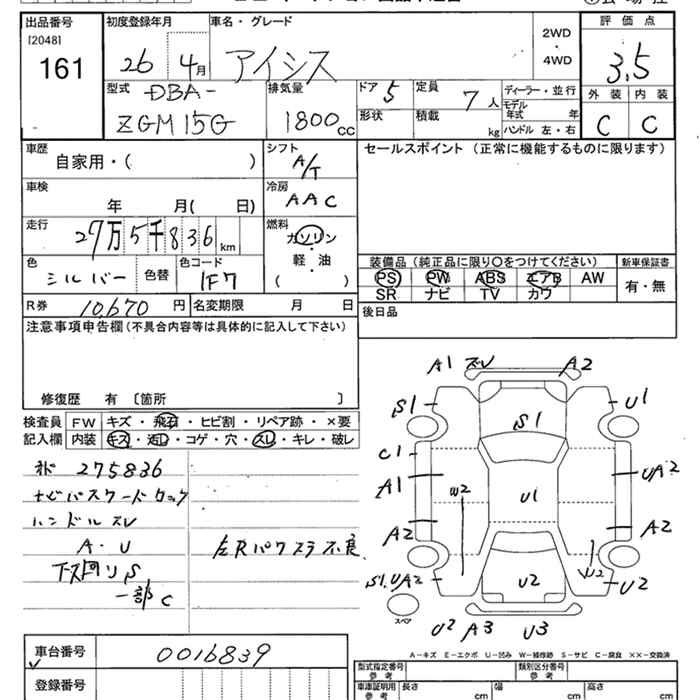 出品番号
[2048]
161
初度登録年月
26 4月
車名・グレード
アイシス
2WD
・
4WD
評価点
3.5
外装 内装
C C
型式
DBA-
ZGM15G
排気量
1800cc
ドア 5
形状
定員 7人
積載 kg
ディーラー・並行
モデル年式 年
ハンドル 左・右
車歴
自家用・( )
シフト
A/T
車検
年 月( 日)
冷房
AAC
走行
27万5千836km
燃料
ガソリン
・
軽・油
( )
色
シルバー
色替
色コード
1F7
R券 10,670円
名変期限 月 日
セールスポイント (正常に機能するものに限ります)
装備品 (純正品に限り○をつけてください)
PS PW ABS エアB AW
SR ナビ TV カワ
新車保証書
有・無
後日品
注意事項申告欄(不具合内容等は具体的に記入して下さい)
修復歴 有 〔箇所 〕
検査員
記入欄
FW キズ・飛石・ヒビ割・リペア跡・×要
内装 キズ・汚レ・コゲ・穴・スレ・キレ・破レ
275836
ナビパスワードロック
ハンドルスレ
A・U
下回りS
一部C
左Rパワスラ不良
A1 スレ A2
S1 S1 U1
C1
A1 W2 U1 UA2
A2 A2
S1.UA2 U2 W2 U2
スペア
U2 A3 U3
A-キズ E-エクボ U-凹み W-補修跡 S-サビ C-腐食 ××-交換済
車台番号 0016839
登録番号
型式指定番号
参考
類別区分番号
参考
車庫証明用
参考
長さ cm
幅 cm
高さ cm